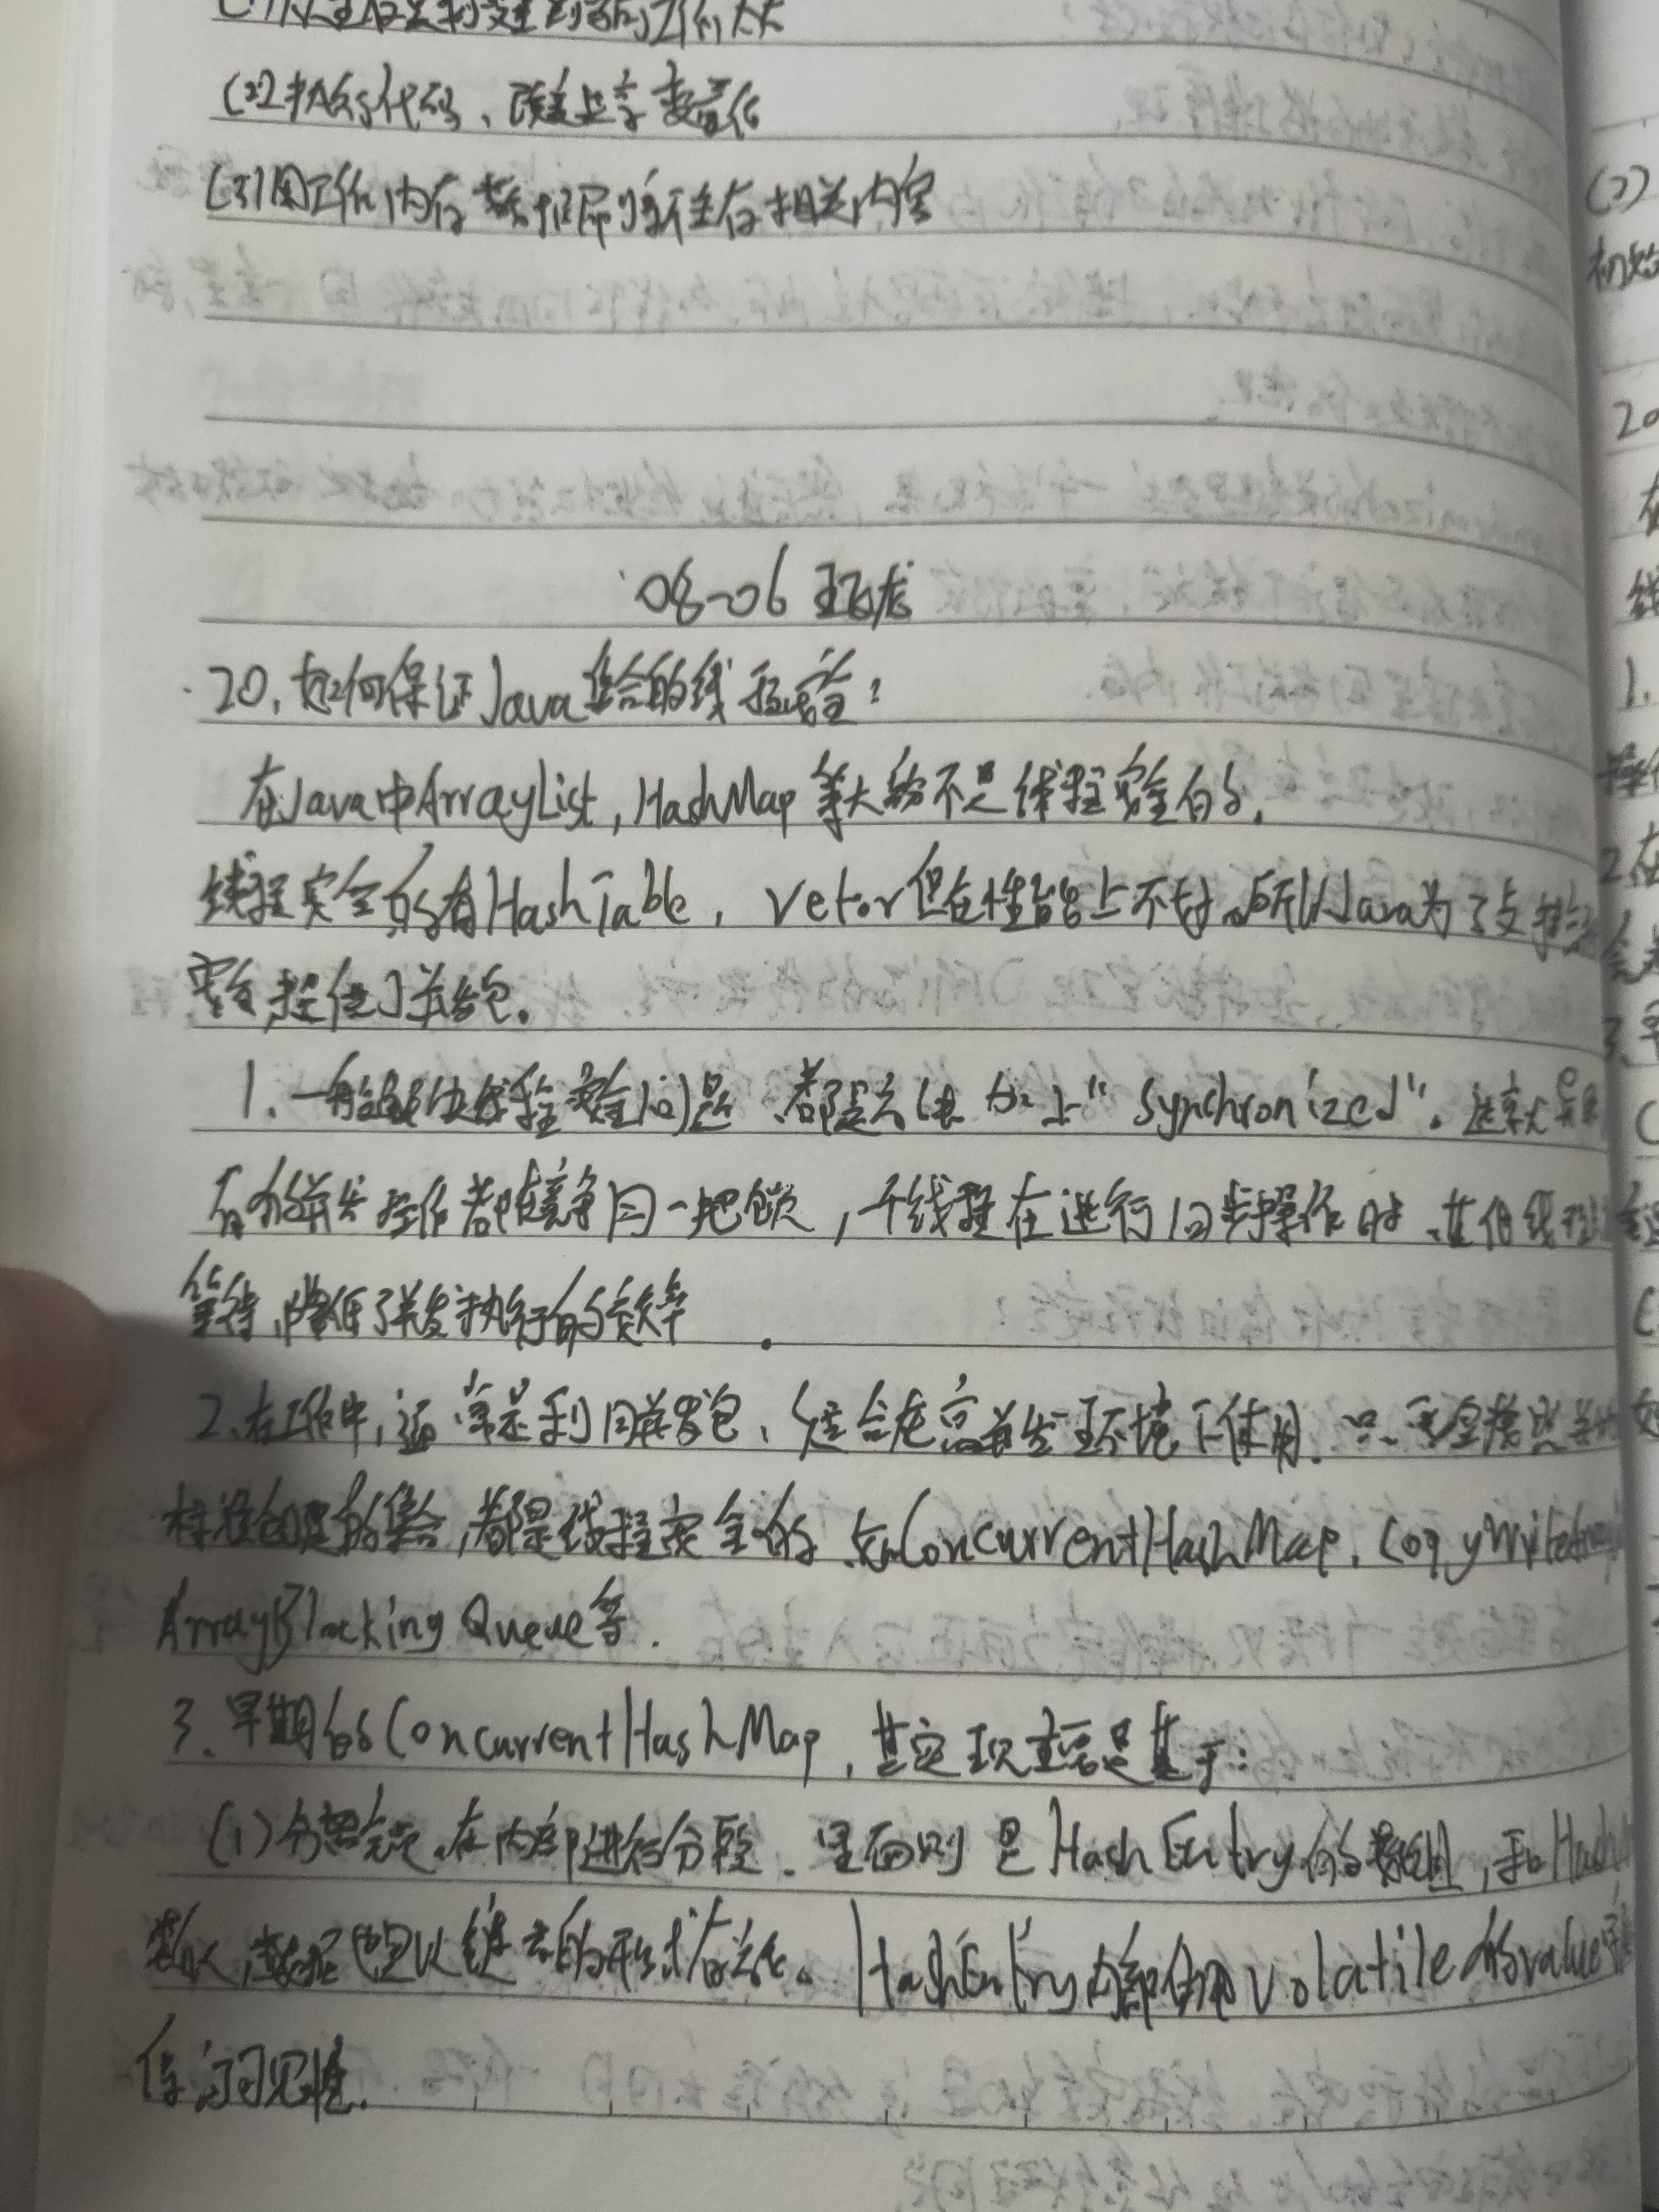 (2)执行代码、改变共享变量值
(3)用工作内存数据刷新主存相关内容
08-06
20.如何保证Java集合的线程安全?
在Java中ArrayList,HashMap等大部不是线程安全的,
线程安全的有HashTable, Vetor但在性能上不好。所以Java为了支持
需要提供了并发包.
1.一般解决线程安全问题、都是方法加上"synchronized".这就导致
有的并发操作都竞争同一把锁,一个线程在进行同步操作时、其他线程
等待,降低了并发执行的效率.
2.在工作中,通常是利用并发包、集合在高并发环境下使用.只要是
标准创建的集合,都是线程安全的.如ConcurrentHashMap.
ArrayBlocking Queue等.
3.早期的ConcurrentHashMap,其实现主要是基于:
(1)分离锁.在内部进行分段.里面则是HashEntry的数组,和Hash
类似,数据也是以链表的形式存放。HashEntry内部使用volatile的value
保证可见性.